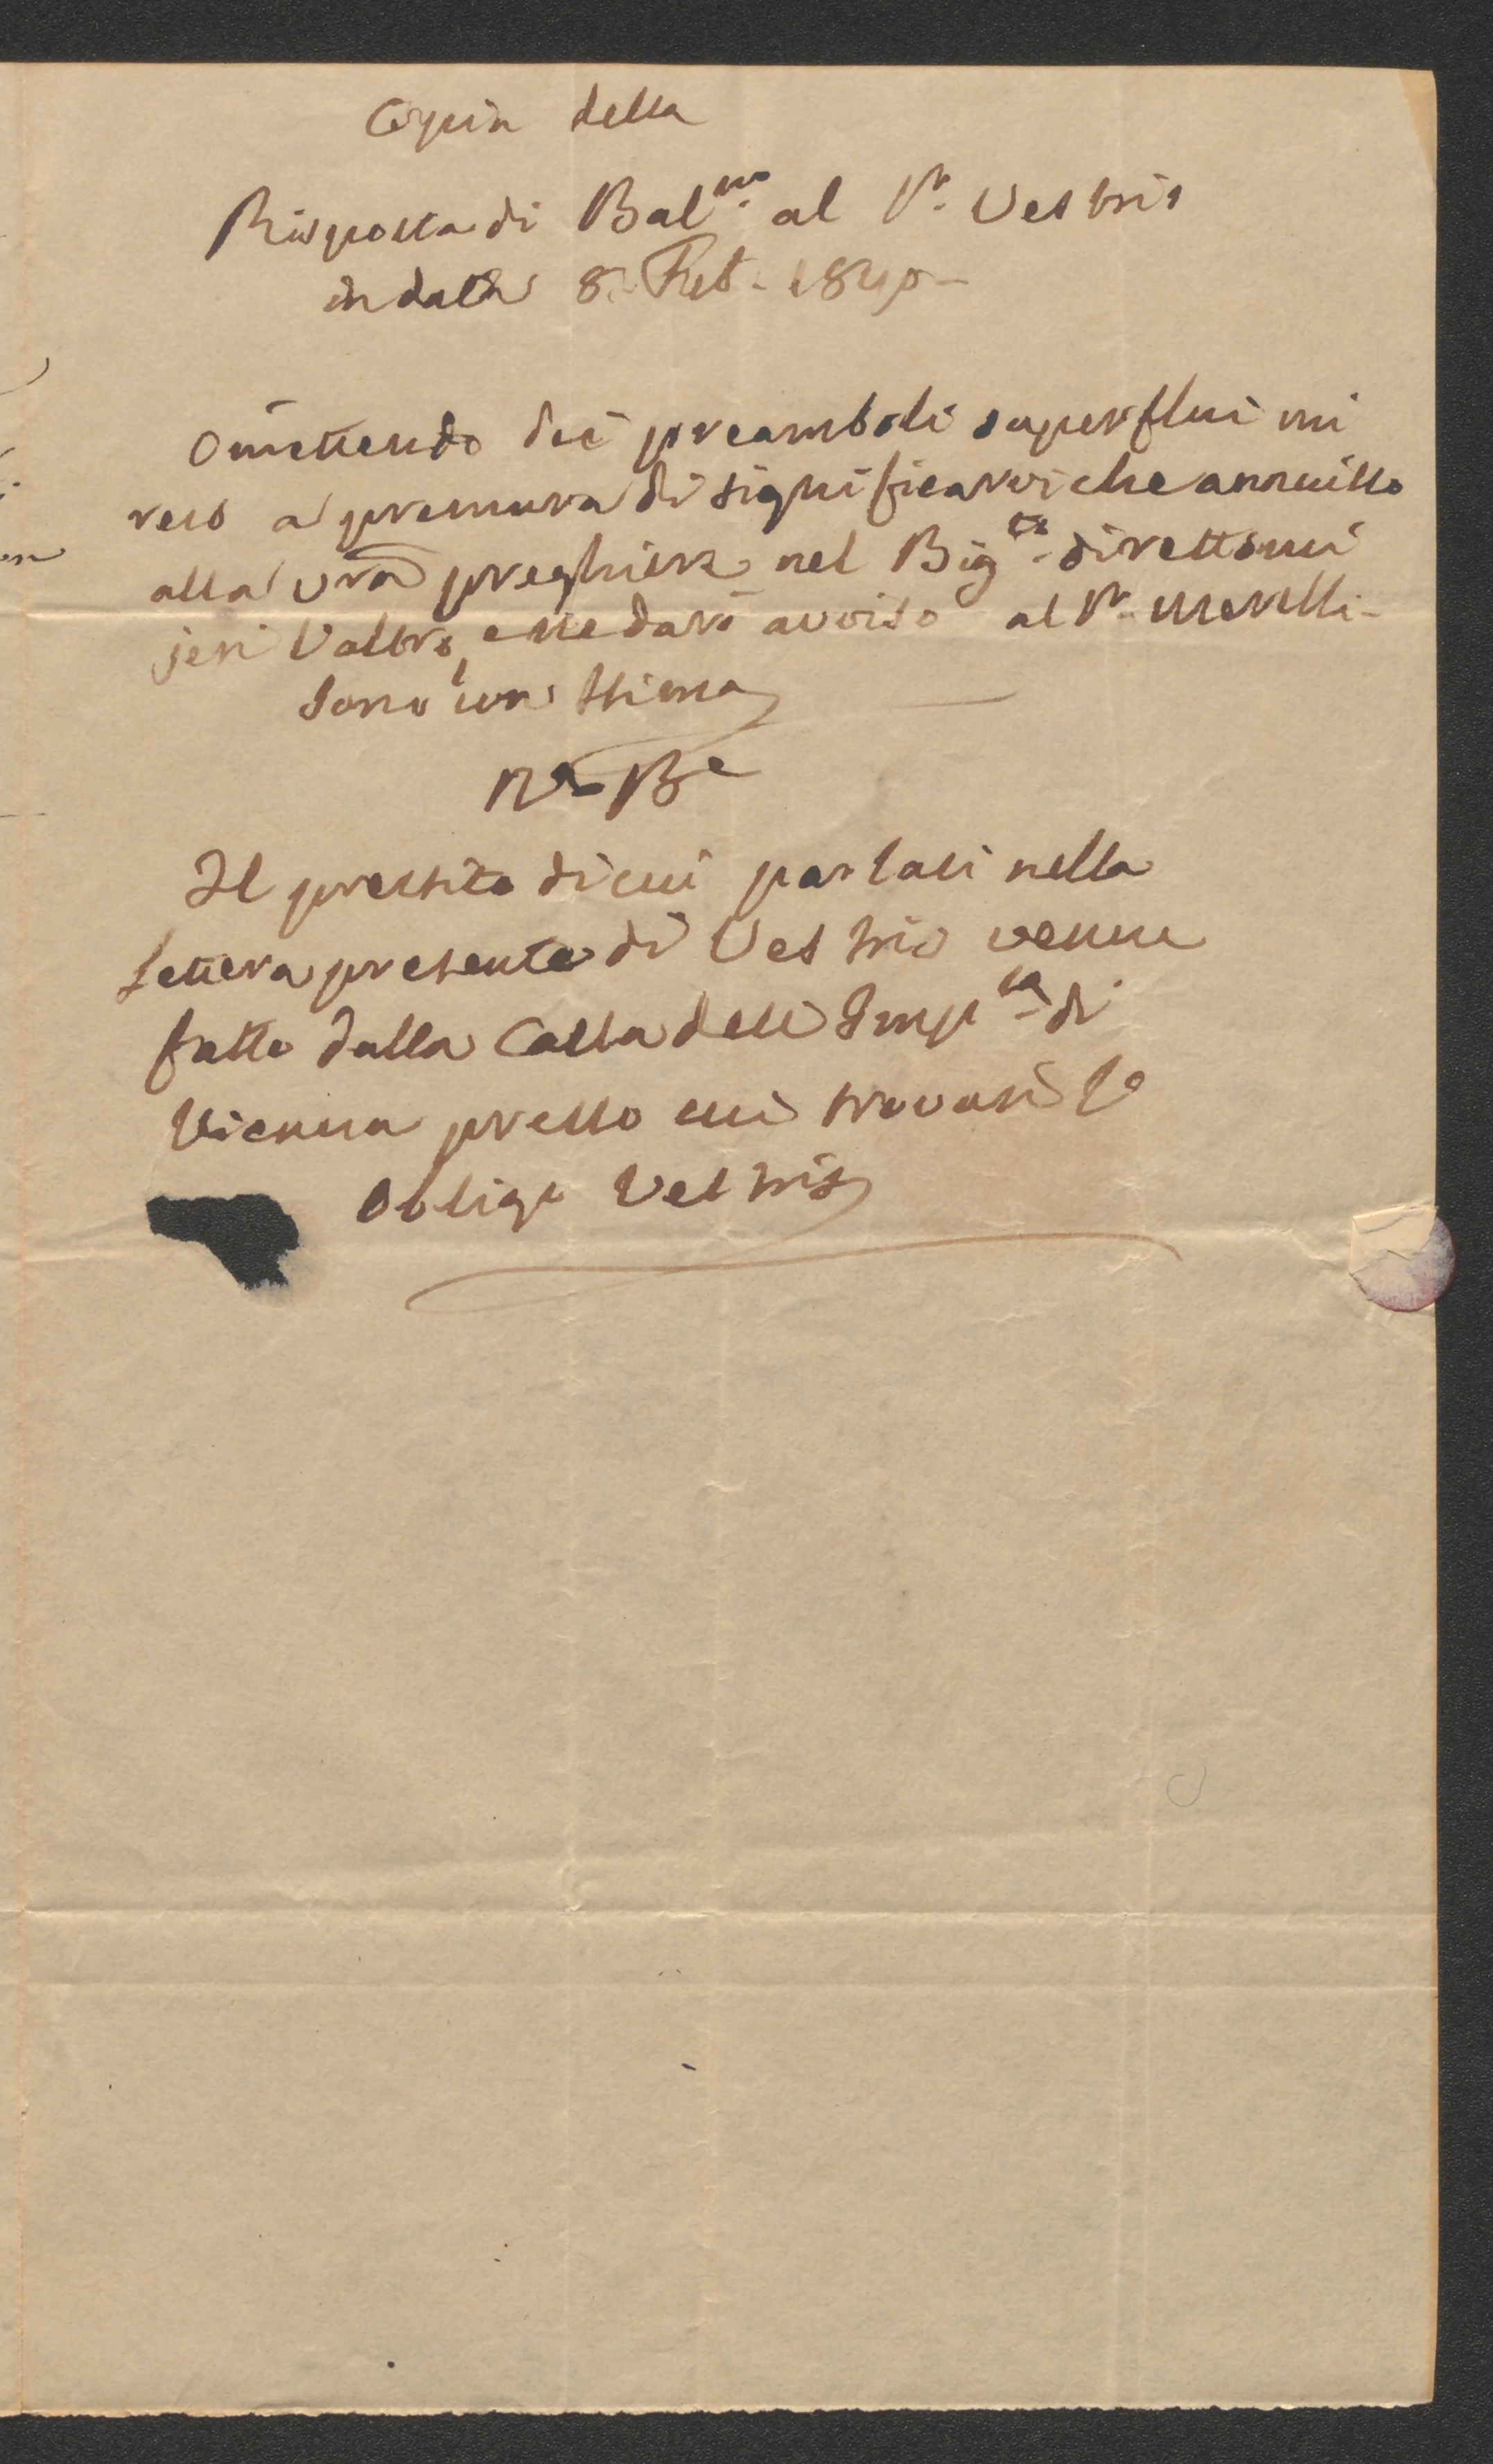 Copia della
Risposta di Bal.no al Sr. Vestris
in data 8. Feb. 1840 -
Omettendo dei preamboli superflui mi
reco a premura di significarvi che annuisco
alla vra preghiera nel Big.to direttomi
jeri l'altro, e ne darò avviso al Sr. Merelli -
Sono con stima
Il prestito di cui parlasi nella
Lettera presente di Vestris venne
fatto dalla Cassa dell' Imp.sa di
Vienna presso cui trovasi l'o
Obligo Vestris